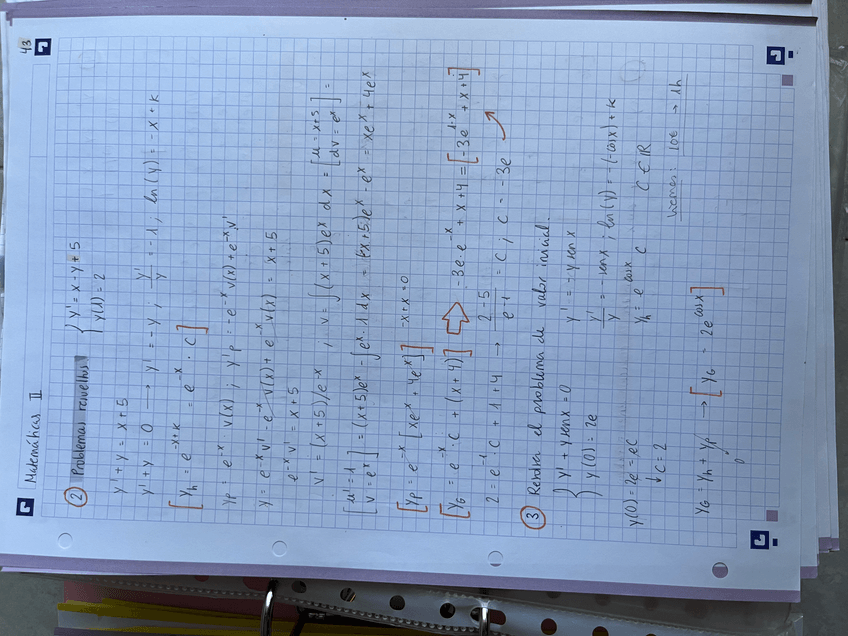 Matemáticas II
43
② Problemas resueltos { y' = x - y + 5
y(1) = 2
y' + y = x + 5
y' + y = 0 → y' = -y ; y'/y = -1, ln(y) = -x + k
[ yh = e^(-x+k) = e^(-x) · c ]
yp = e^(-x) · v(x) ; y'p = -e^(-x) v(x) + e^(-x) v'
y = e^(-x) v' - e^(-x) v(x) + e^(-x) v(x) = x + 5
e^(-x) v' = x + 5
v' = (x + 5)/e^(-x) , v = ∫ (x + 5) e^x dx = [ u = x + 5
dv = e^x ] =
[ u' = 1
v = e^x ] = (x + 5) e^x - ∫ e^x · 1 dx = (x + 5) e^x - e^x = x e^x + 4e^x
[ yp = e^(-x) [ x e^x + 4e^x ] ] -x + x = 0
[ yG = e^(-x) · c + (x + 4) ] ⇒ -3e · e^(-x) + x + 4 = [ -3e^(1-x) + x + 4 ]
2 = e^(-1) · c + 1 + 4 → (2 - 5)/e^(-1) = c ; c = -3e
③ Resolver el problema de valor inicial.
{ y' + y sen x = 0
y(0) = 2e
y' = -y sen x
y'/y = -sen x ; ln(y) = -(-cos x) + k
yh = e^(cos x) c c ∈ ℝ
y(0) = 2e = ec
↓ c = 2
10€ → 1h
yG = yh + yp → [ yG = 2e^(cos x) ]
0